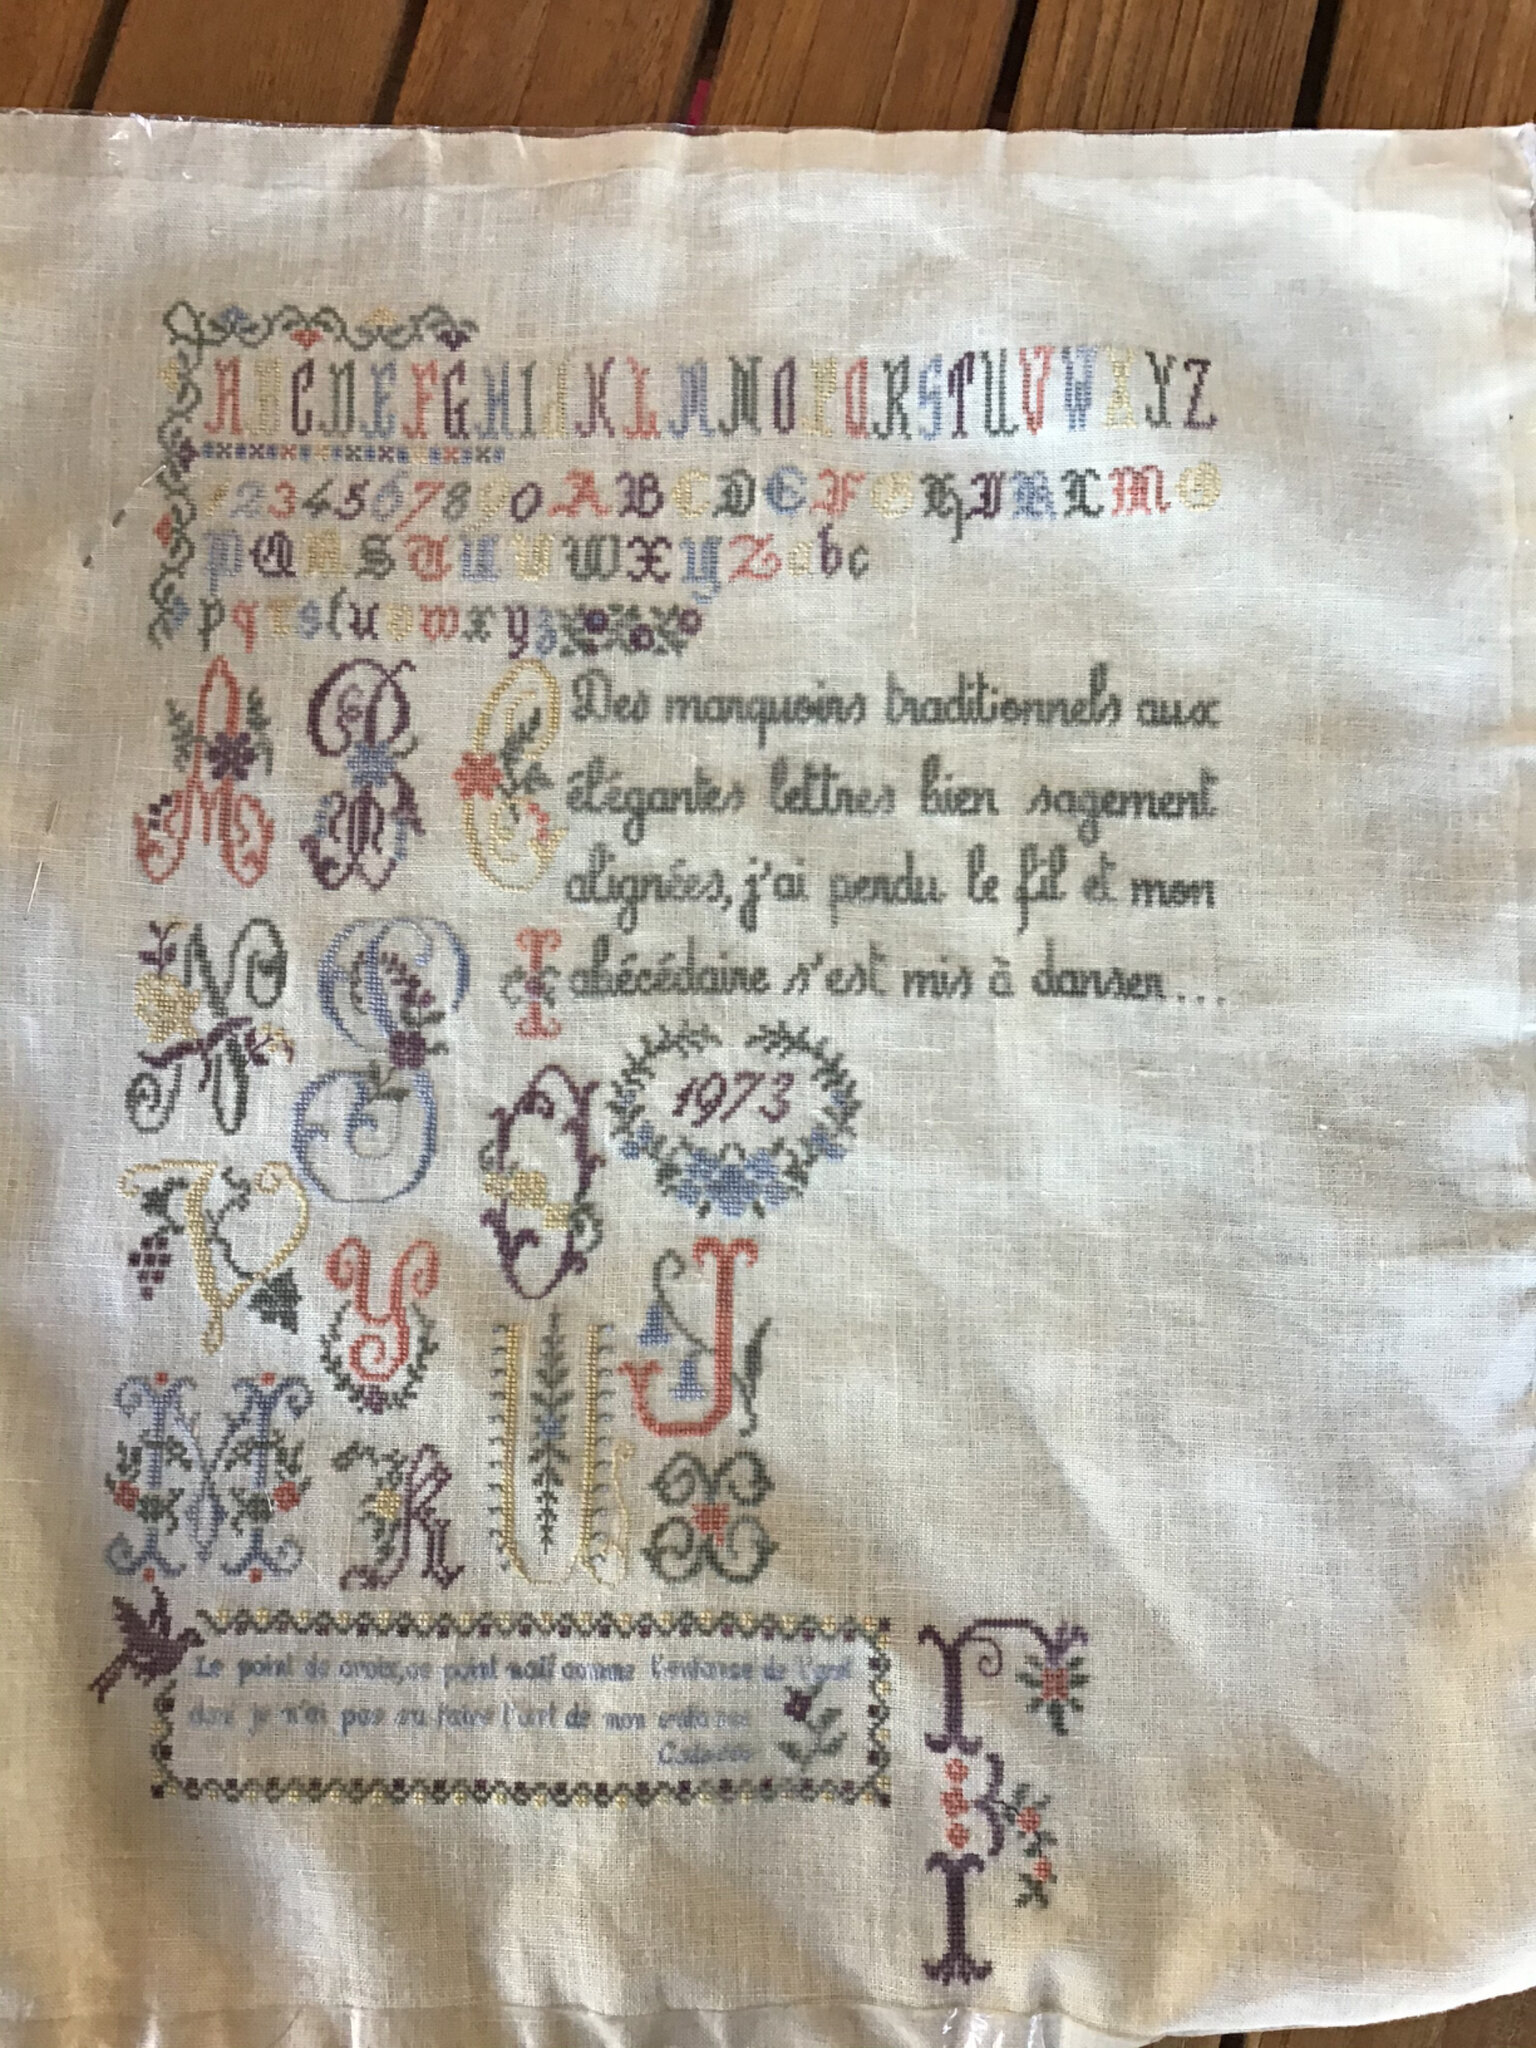 A B C D E F G H I J K L M N O P Q R S T U V W X Y Z
1 2 3 4 5 6 7 8 9 0 A B C D E F G H I K L M O
P Q R S T U V W X Y Z a b c
p q r s t u v w x y z
A B C
Des marquoirs traditionnels aux
élégantes lettres bien sagement
alignées, j'ai perdu le fil et mon
abécédaire s'est mis à danser...
N S I
O
1973
V Y J
M K U X
Le point de croix, ce point naïf comme l'enfance de l'art
dont je n'ai pas su faire l'art de mon enfance
Colette
F